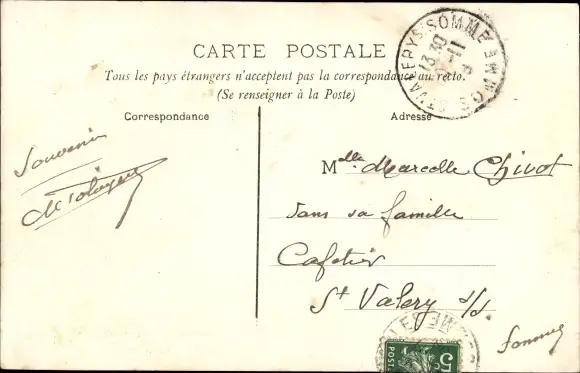 CARTE POSTALE
Tous les pays étrangers n'acceptent pas la correspondance au recto.
(Se renseigner à la Poste)
Correspondance
Adresse
Souvenir
Mlle Marcelle Chivot
dans sa famille
Cafetier
St Valery s/s
Somme
ST VALERY S/ SOMME SOMME
13 30
11
5c